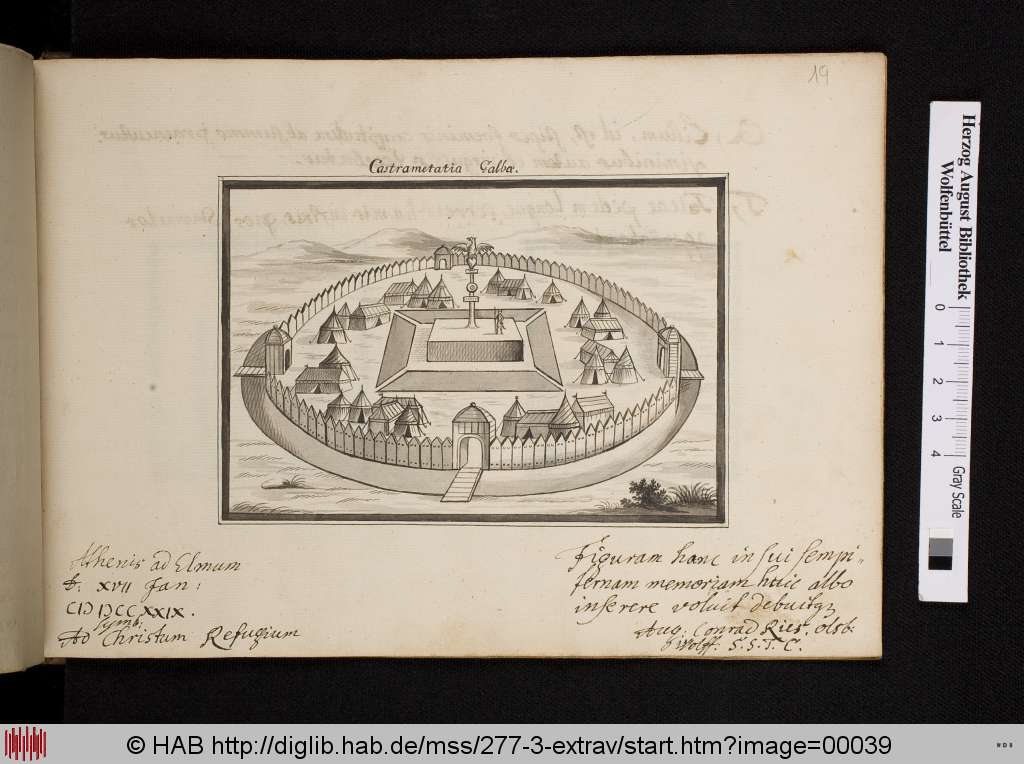 19
Castrametatia Galbæ.
Athenis ad Elmum
d: XVII Jan:
CIƆ IƆCCXXIX.
Symb:
Ad Christum Refugium
Figuram hanc in sui sempi-
ternam memoriam huic albo
inserere voluit debuitq
Aug: Conrad Ries. olsb.
Wolff: S. S. T. C.
Herzog August Bibliothek
Wolfenbüttel
0 1 2 3 4
Gray Scale
© HAB http://diglib.hab.de/mss/277-3-extrav/start.htm?image=00039
WDB